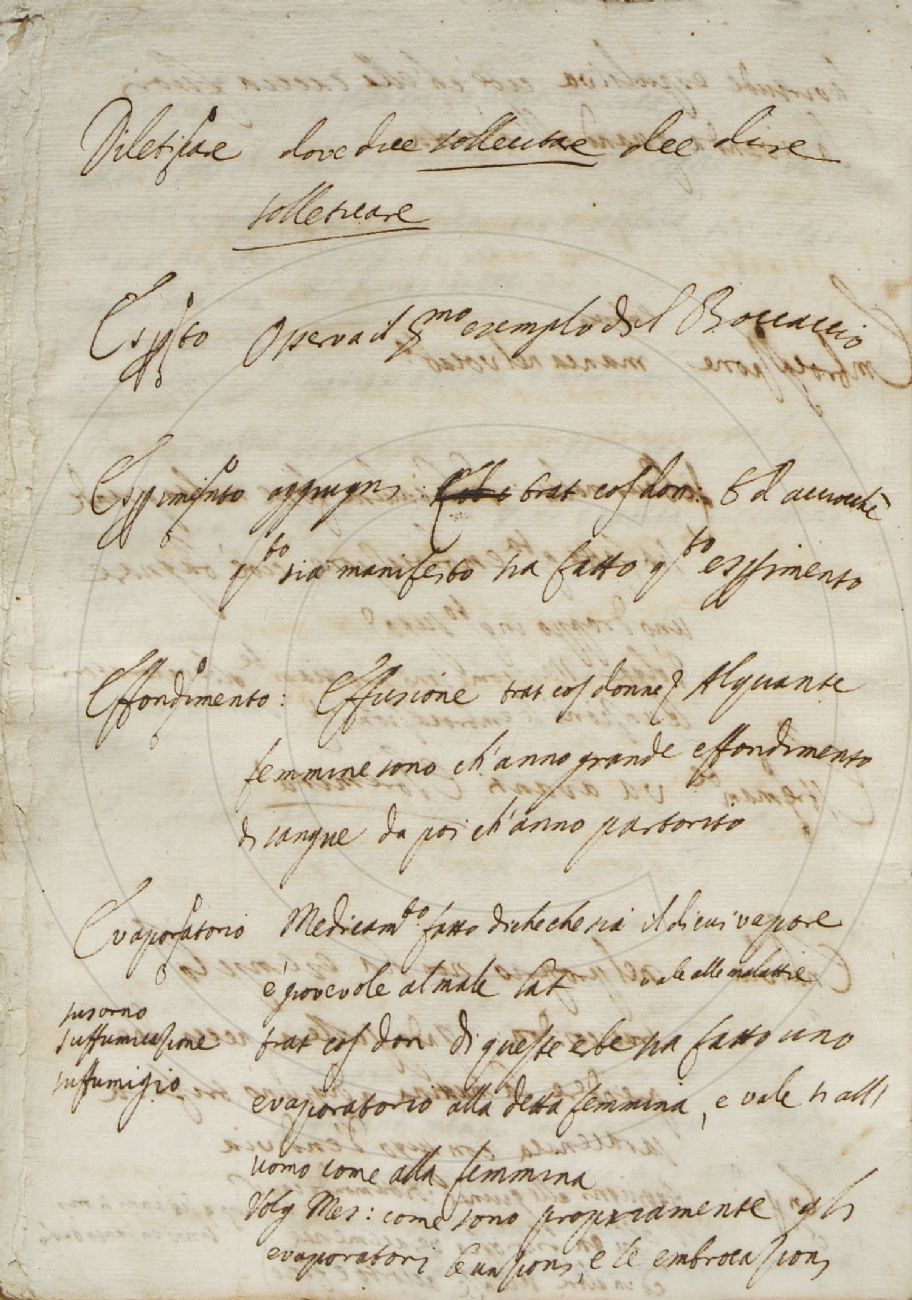 Dileticare dove dice sollecitare dee dire
solleticare
Esp.to Osserva il p.mo esemplo del Boccaccio
Esprimento aggiugni: trat cos don: E d acciocchè
q.to sia manifesto sia fatto q.to esprimento
Effondimento: Effusione trat cos donne Alquante
femmine sono ch'anno grande effondimento
di sangue da poi ch'anno partorito
Evaporatorio Medicam.to fatto di che che sia il di cui vapore
è giovevole al male Lat vale alle malattie
suffumicazione
suffumigio
trat cos don di queste erbe sia fatto uno
evaporatorio alla detta femmina, e vale sì all
uomo come alla femmina
Volg Mes: come sono propriamente gli
evaporatori le unzioni, e le embrocazioni